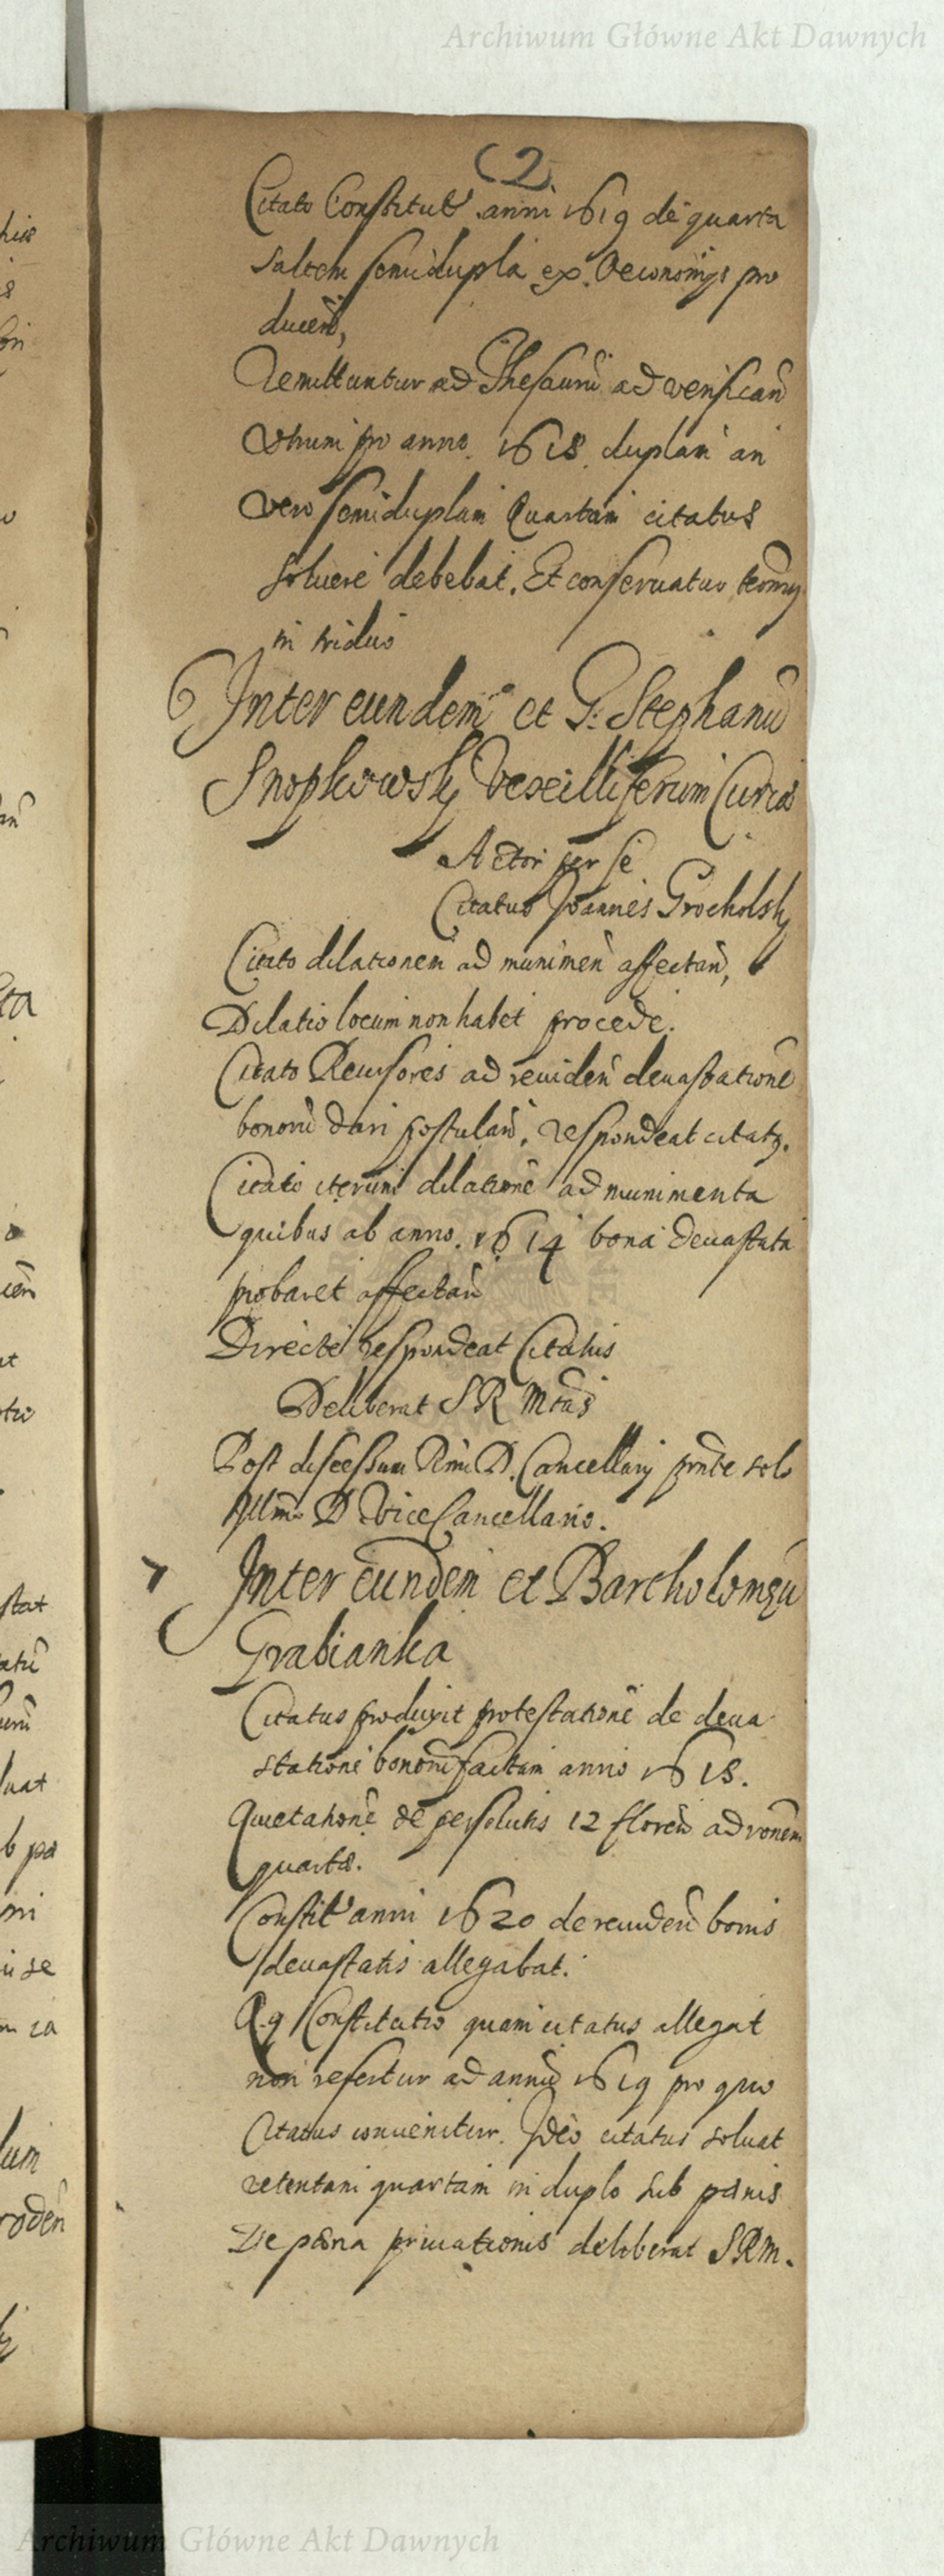 Archiwum Główne Akt Dawnych
(2)
Citato Constitut. anni 1619 de quarta
saltem semidupla ex Oeconomijs pro
ducen̄,
Remittuntur ad Thesaurū ad verifican̄
Utrum pro anno 1618 duplam an
vero semiduplam Quartam citatus
soluere debebat. Et conseruatur termıng
in triduo
6 Inter eundem et G. Stephanū
Snopkowsky Vexilliferum Curiæ
Actor per se
Citatus Joannes Grocholsky
Citato dilationem ad munimen̄ affectan̄,
Dilatio locum non habet procede.
Citato Reuisores ad reuiden̄ deuastationē
bonorū dari postulan̄, respondeat citatg.
Citato iterum dilationē ad munimenta
quibus ab anno. 1614 bona deuastata
probaret affectan̄
Directe respondeat Citatus
Deliberat S R Mtas
Post discessum Rmi D. Cancellarij pnte solo
Illmo D ViceCancellario.
7 Inter eundem et Bartholomęū
Grabianka
Citatus produxit protestationē de deua
statione bonorū factam anno 1618.
Quietationē de persolutis 12 floren̄ ad ronem
quartæ.
Constit anni 1620 de reuiden̄ bonis
deuastatis allegabat.
Q.q Constitutio quam citatus allegat
non refertur ad annū 1619 pro quo
Citatus conuenitur. Ideo citatus soluat
retentam quartam in duplo sub pænis
De pæna priuationis deliberat SRM.
Archiwum Główne Akt Dawnych